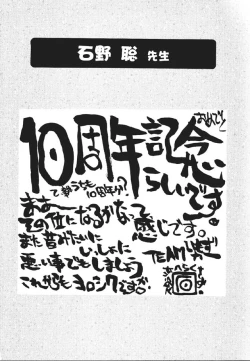 石野 聡 先生
おめでとー
10周年記念
らしいです。
て事うちも
10周年か?
まあー
その位になるかなって
感じです。
また昔みたいに
いっしょに
悪い事でもしましょう
これからもヨロシクですぅ
TEAM